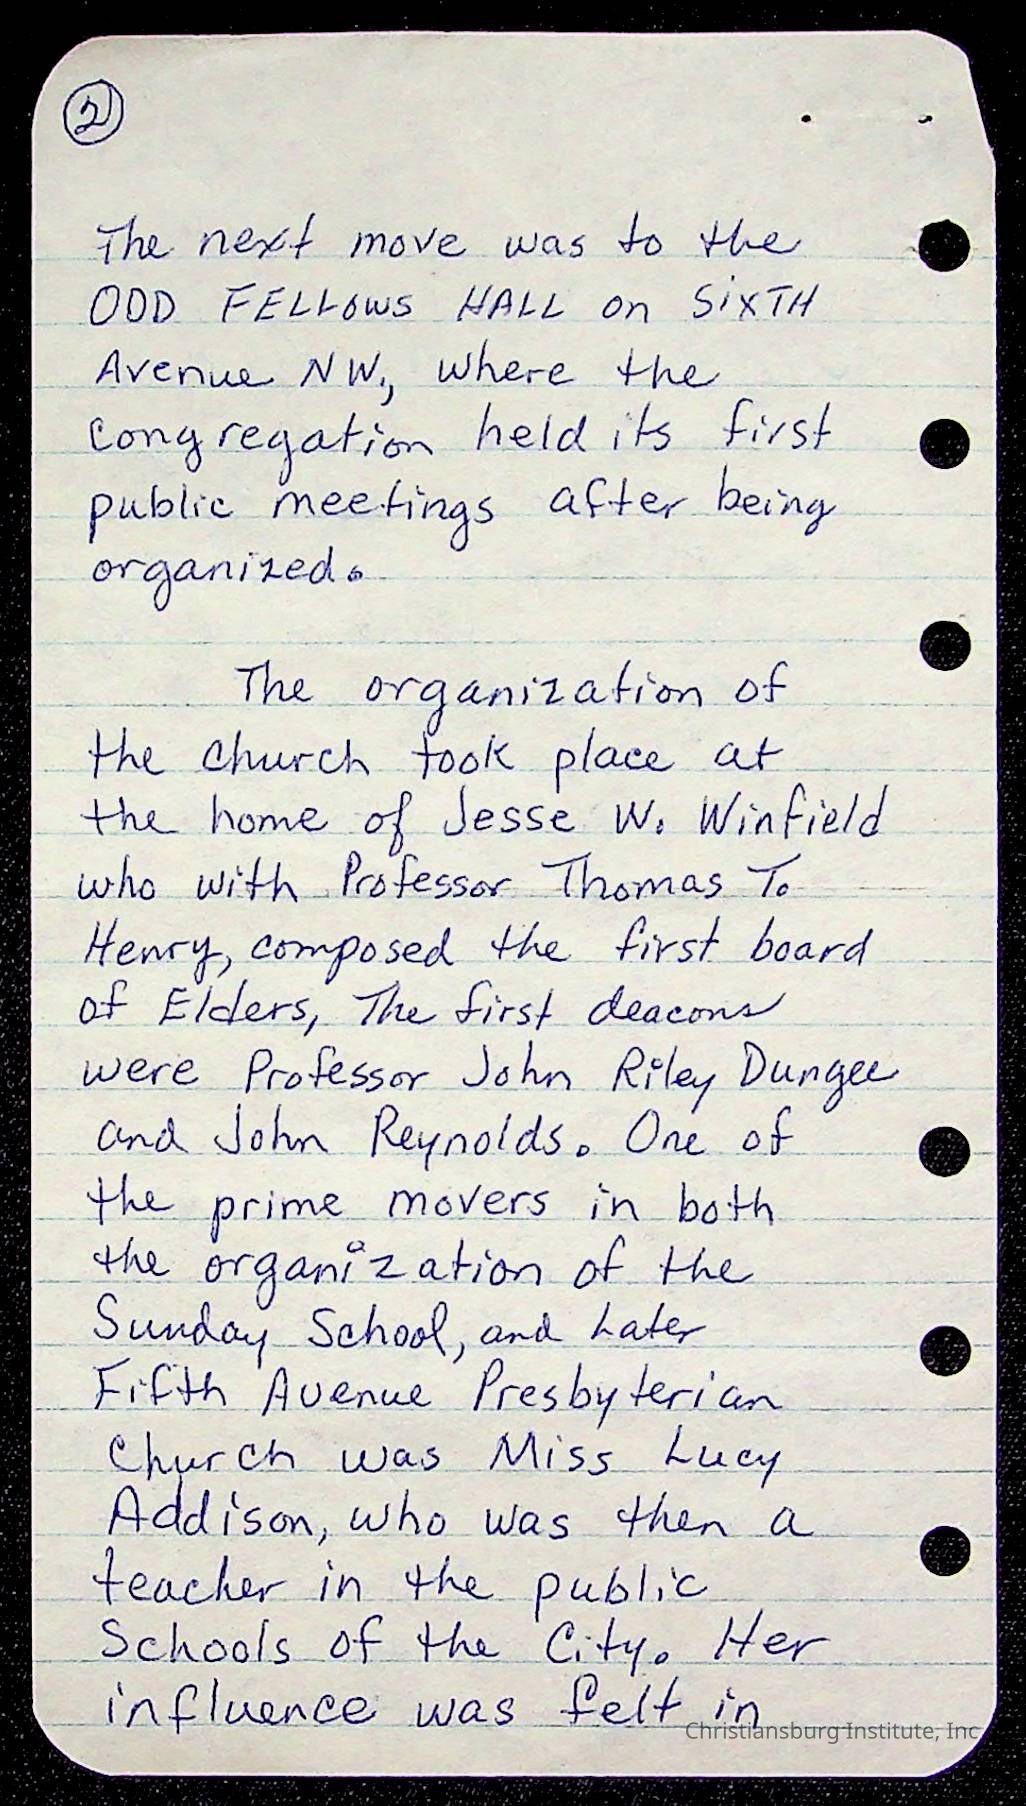 2
The next move was to the
ODD FELLOWS HALL on SiXTH
Avenue NW., where the
Congregation held its first
public meetings after being
organized.
The organization of
the church took place at
the home of Jesse W. Winfield
who with Professor Thomas T.
Henry, composed the first board
of Elders, The first deacons
were Professor John Riley Dungee
and John Reynolds. One of
the prime movers in both
the organization of the
Sunday School, and Later
Fifth Avenue Presbyterian
Church was Miss Lucy
Addison, who was then a
teacher in the public
Schools of the City. Her
influence was felt in
Christiansburg Institute, Inc